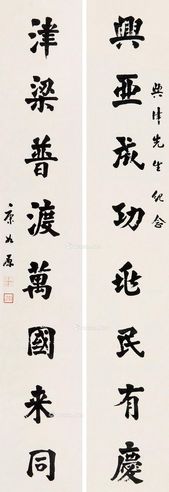 興亞成功兆民有慶
興津先生紀念
津梁普渡萬國来同